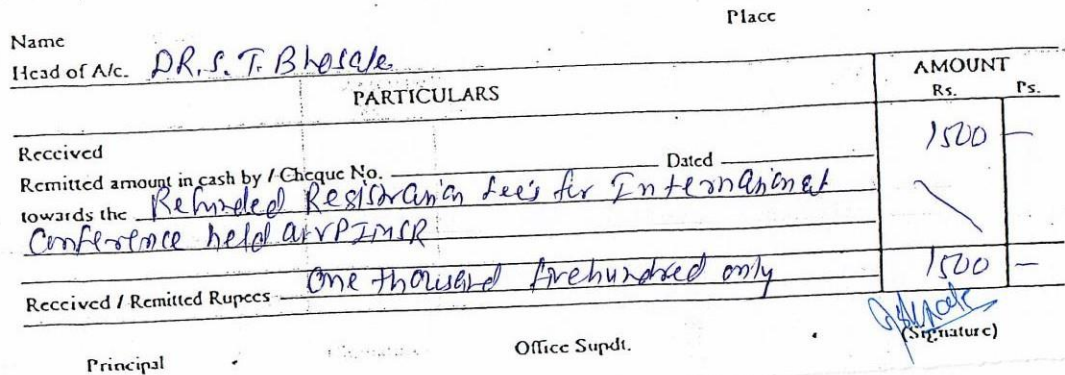 Place
Name
Head of A/c. DR. S. T. Bhosale
PARTICULARS
AMOUNT
Rs. Ps.
Received
1500 —
Remitted amount in cash by / Cheque No. Dated
towards the Refunded Registration fees for International
Conference held at VPIMSR
Received / Remitted Rupees One thousand five hundred only 1500 —
(Signature)
Principal Office Supdt.